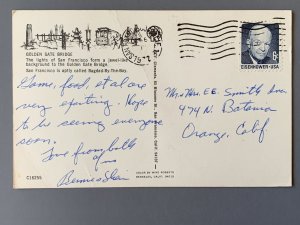 GOLDEN GATE BRIDGE
The lights of San Francisco form a jewel-like
background to the Golden Gate Bridge.
San Francisco is aptly called Bagdad-By-The-Bay.
Home, food, et al are
very exciting. Hope
to be seeing everyone
soon.
Love from both
of us
C18255
COLOR BY MIKE ROBERTS
BERKELEY, CALIF. 94710
6c
EISENHOWER·USA
Mr. & Mrs. E.E. Smith
474 N. Batavia
Orange, Calif